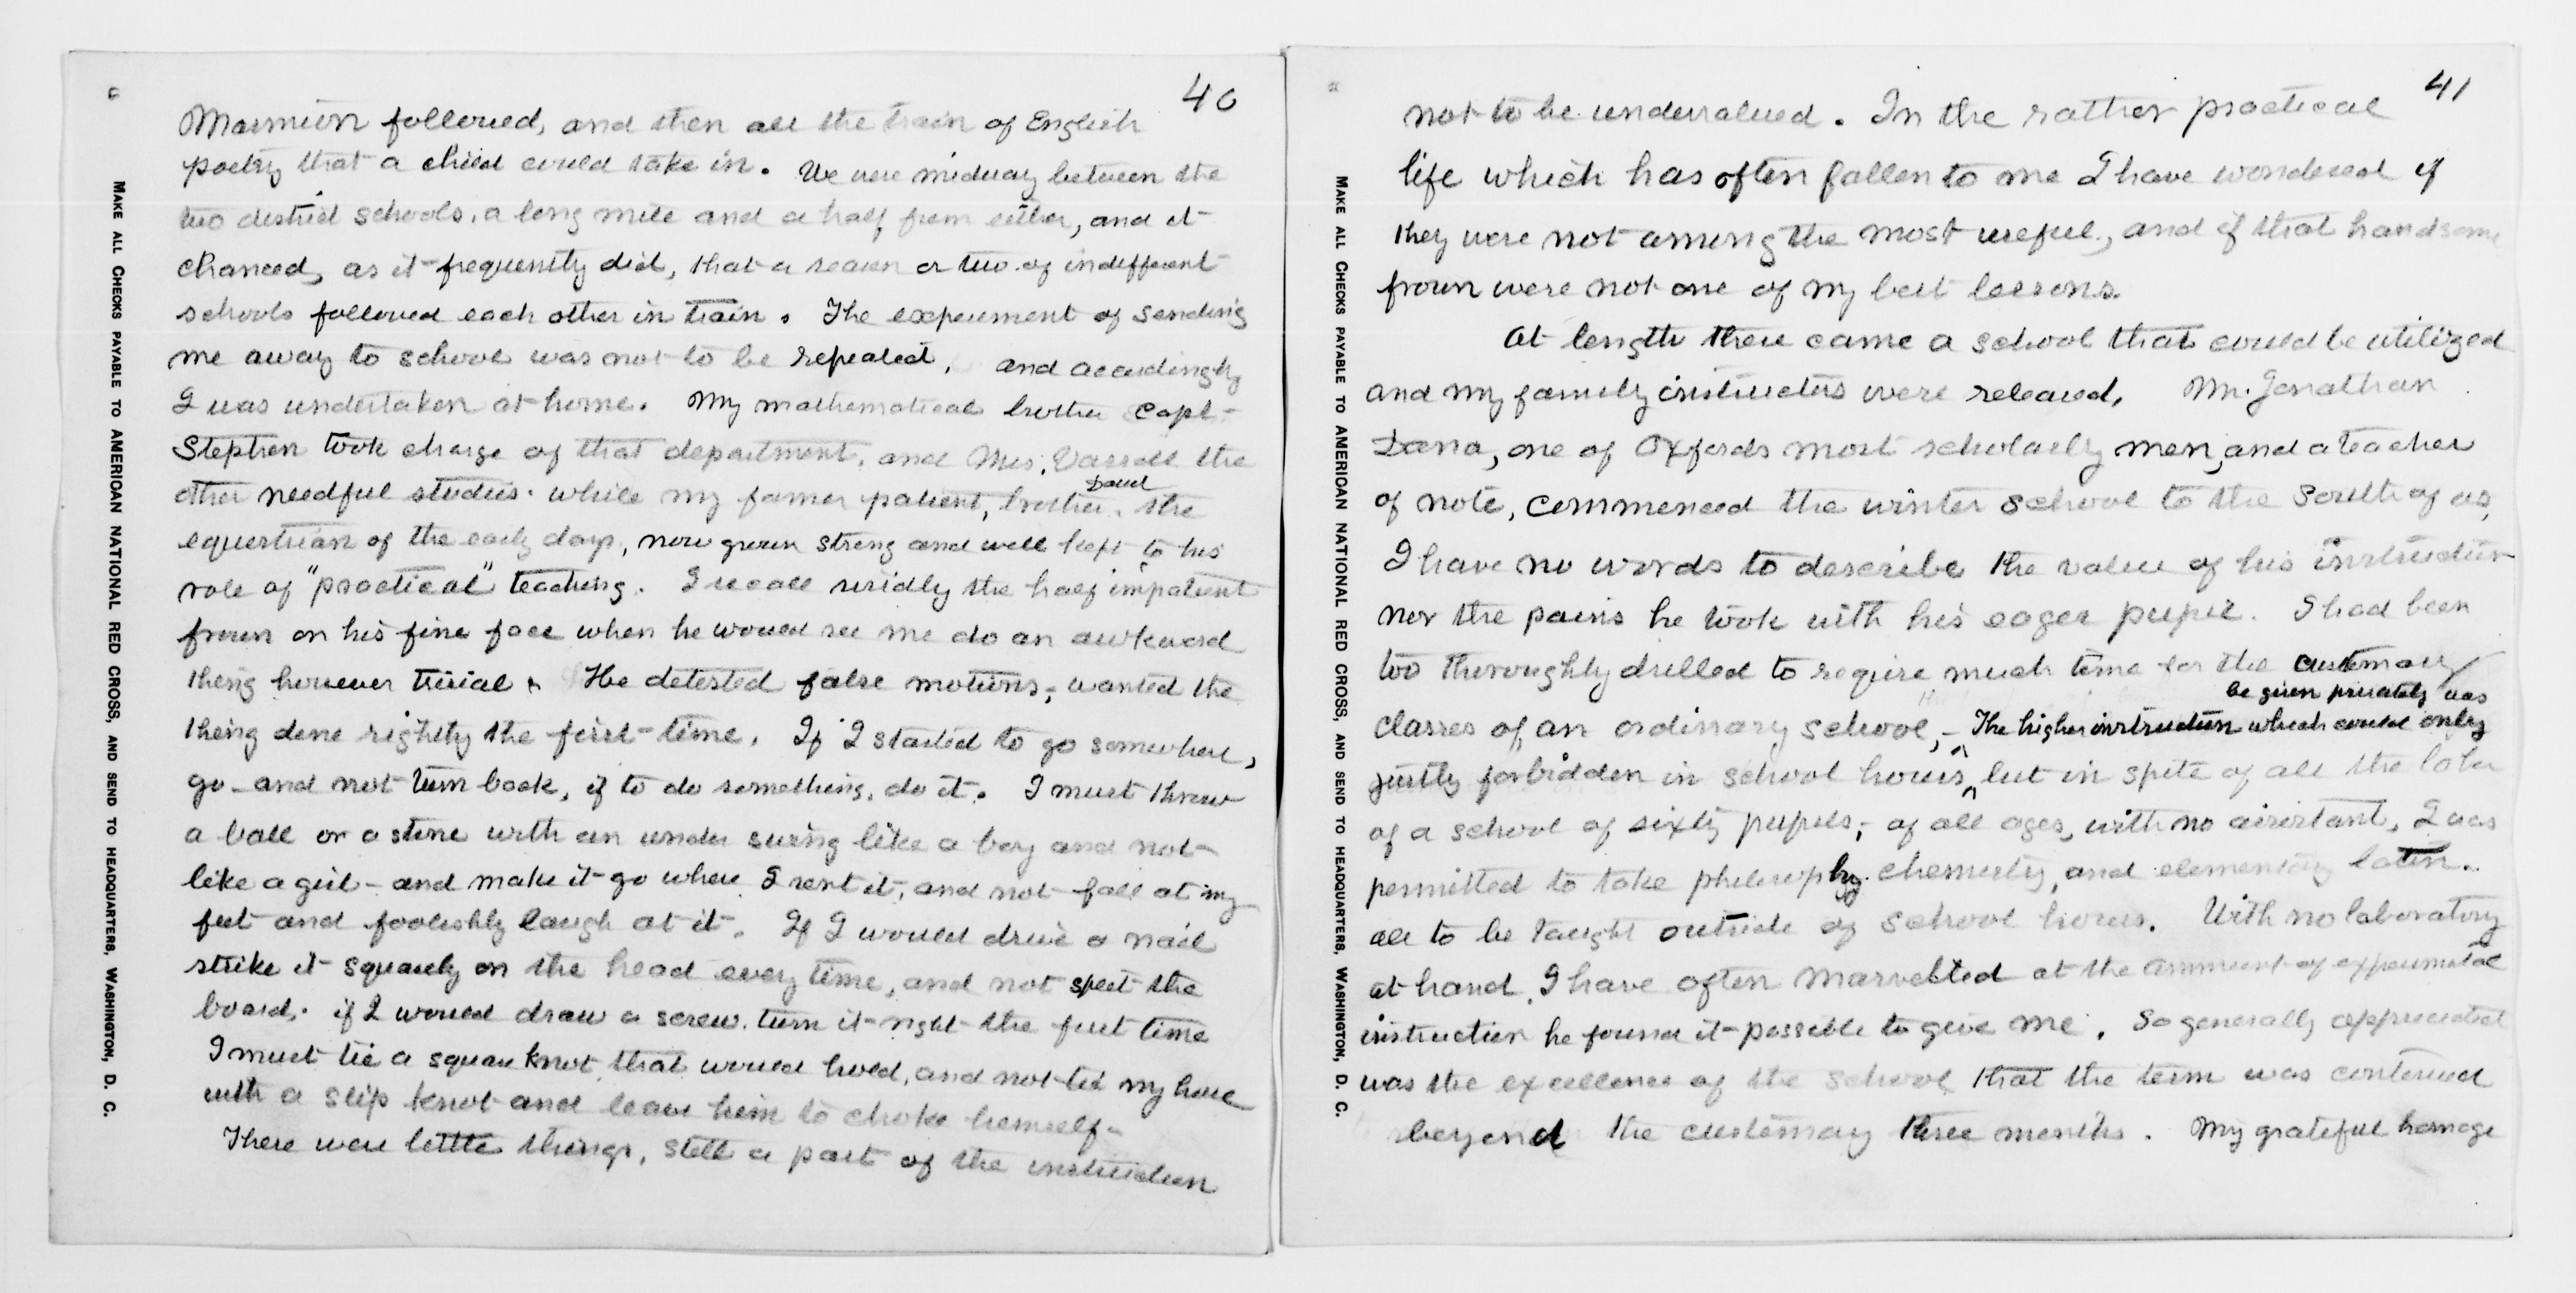 40
Marmion followed, and then all the train of English
poetry that a child could take in. We were midway between the
two district schools, a long mile and a half from either, and it
chanced, as it frequently did, that a season or two of indifferent
schools followed each other in train. The experiment of sending
me away to school was not to be repeated, and accordingly
I was undertaken at home. My mathematical brother Capt-
Stephen took charge of that department, and Mrs. Vassall the
other needful studies. while my former patient, brother David the
equestrian of the early days, now grown strong and well kept to his
role of "practical" teaching. I recall vividly the half impatient
frown on his fine face when he would see me do an awkward
thing however trivial. He detested false motions; wanted the
thing done rightly the first time. If I started to go somewhere,
go - and not turn back, if to do something, do it. I must throw
a ball or a stone with an under swing like a boy and not
like a girl - and make it go where I sent it, and not fall at my
feet and foolishly laugh at it. If I would drive a nail
strike it squarely on the head every time, and not split the
board. if I would draw a screw, turn it right the first time
I must tie a square knot that would hold, and not tie my horse
with a slip knot and leave him to choke himself-
There were little things, still a part of the instruction
MAKE ALL CHECKS PAYABLE TO AMERICAN NATIONAL RED CROSS, AND SEND TO HEADQUARTERS, WASHINGTON, D. C.
41
not to be undervalued. In the rather practical
life which has often fallen to me I have wondered if
they were not among the most useful, and if that handsome
frown were not one of my best lessons.
At length there came a school that could be utilized
and my family instructors were released, Mr. Jonathan
Dana, one of Oxfords most scholarly men, and a teacher
of note, commenced the winter school to the South of us,
I have no words to describe the value of his instruction
nor the pains he took with his eager pupil. I had been
too thoroughly drilled to require much time for the customary
classes of an ordinary school, - The higher instruction which could only be given privately was
justly forbidden in school hours, but in spite of all the labor
of a school of sixty pupils, of all ages, with no assistant, I was
permitted to take philosophy. chemistry, and elementary latin.
all to be taught outside of school hours. With no laboratory
at hand, I have often marvelled at the ammount of experimental
instruction he found it possible to give me. So generally appreciated
was the excellence of the school that the term was continued
beyond the customary three months. My grateful homage
MAKE ALL CHECKS PAYABLE TO AMERICAN NATIONAL RED CROSS, AND SEND TO HEADQUARTERS, WASHINGTON, D. C.